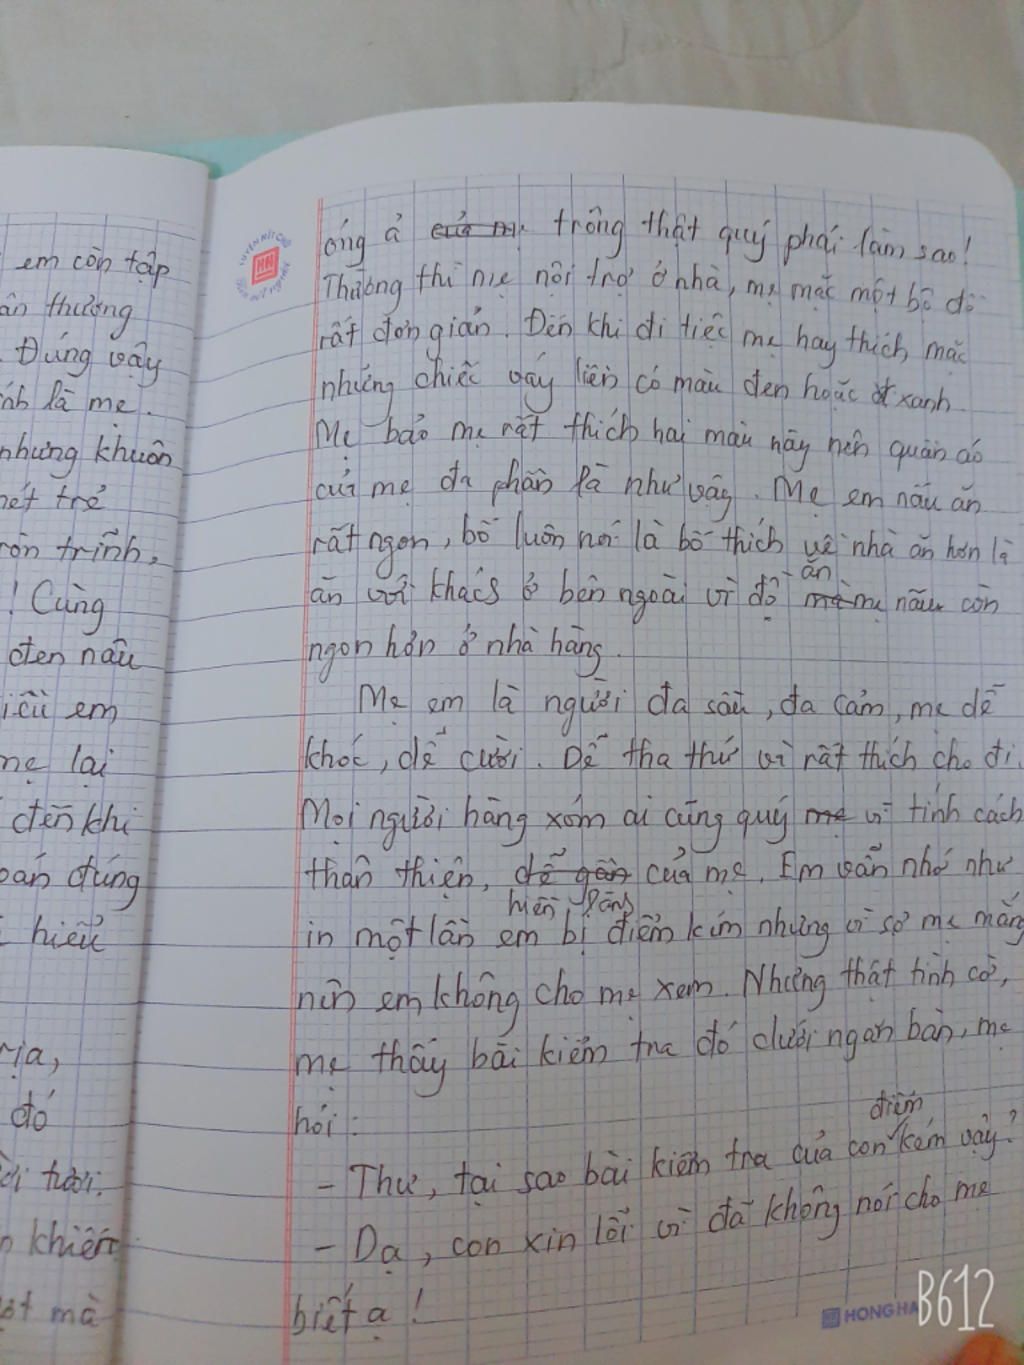 em còn tập
ân thương
. Đúng vậy
ính là mẹ.
nhưng khuôn
nét trẻ
tròn trĩnh,
! Cùng
đen nâu
iều em
mẹ lại
đến khi
oán đúng
hiểu
rịa,
đó
ời tươi.
n khiến
ột mà
óng ả của mẹ trông thật quý phái làm sao!
Thường thì mẹ nội trợ ở nhà, mẹ mặc một bộ đồ
rất đơn giản. Đến khi đi tiệc mẹ hay thích mặc
những chiếc váy liền có màu đen hoặc xanh
Mẹ bảo mẹ rất thích hai màu này nên quần áo
của mẹ đa phần là như vậy. Mẹ em nấu ăn
rất ngon, bố luôn nói là bố thích về nhà ăn hơn là
ăn với khács ở bên ngoài vì đồ ăn mẹ nấu còn
ngon hơn ở nhà hàng.
Mẹ em là người đa sầu, đa cảm, mẹ dễ
khóc, dễ cười. Dễ tha thứ và rất thích cho đi.
Mọi người hàng xóm ai cũng quý mẹ vì tính cách
thân thiện, dễ gần hiền lành của mẹ. Em vẫn nhớ như
in một lần em bị điểm kém nhưng vì sợ mẹ mắng
nên em không cho mẹ xem. Nhưng thật tình cờ,
mẹ thấy bài kiểm tra đó dưới ngăn bàn, mẹ
hỏi:
- Thư, tại sao bài kiểm tra của con điểm kém vậy?
- Dạ, con xin lỗi vì đã không nói cho mẹ
biết ạ!
HONG HA
B612